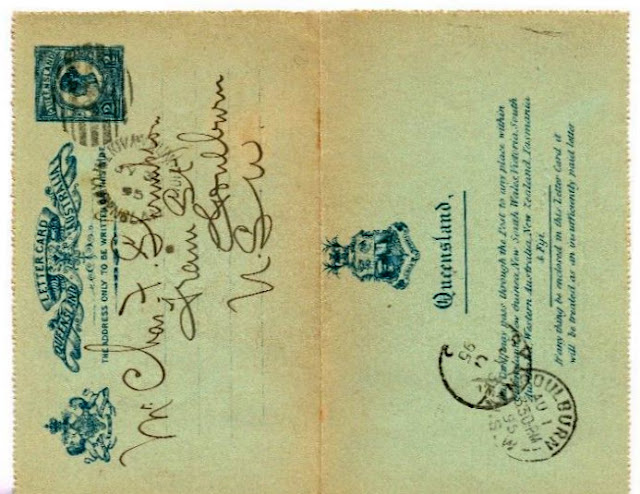 QUEENSLAND
2D
LETTER CARD
AUSTRALIA
QUEENSLAND
THE ADDRESS ONLY TO BE WRITTEN ON THIS SIDE
Mr. Chas. F.
Goulburn
N.S.W.
Queensland,
may pass through the Post to any place within
Queensland, New Guinea, New South Wales, Victoria, South
Australia, Western Australia, New Zealand, Tasmania
& Fiji.
If any thing be enclosed in this Letter Card it
will be treated as an insufficiently paid letter
95
2
GOULBURN
AU 1
3 50 PM
95
N.S.W